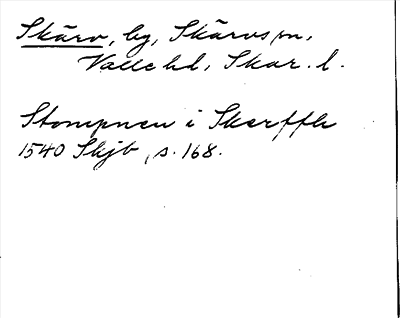 Skärv, by, Skärvs sn,
Valle hd, Skar. l.
Stompnen i Skerffle
1540 Skjb, s. 168.